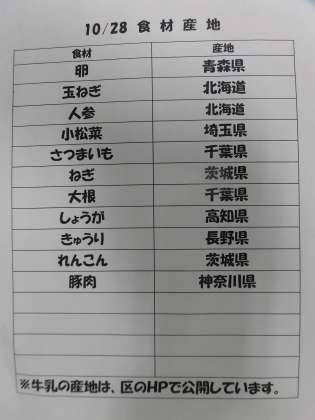 10/28 食材産地
食材 産地
卵 青森県
玉ねぎ 北海道
人参 北海道
小松菜 埼玉県
さつまいも 千葉県
ねぎ 茨城県
大根 千葉県
しょうが 高知県
きゅうり 長野県
れんこん 茨城県
豚肉 神奈川県
※牛乳の産地は、区のHPで公開しています。